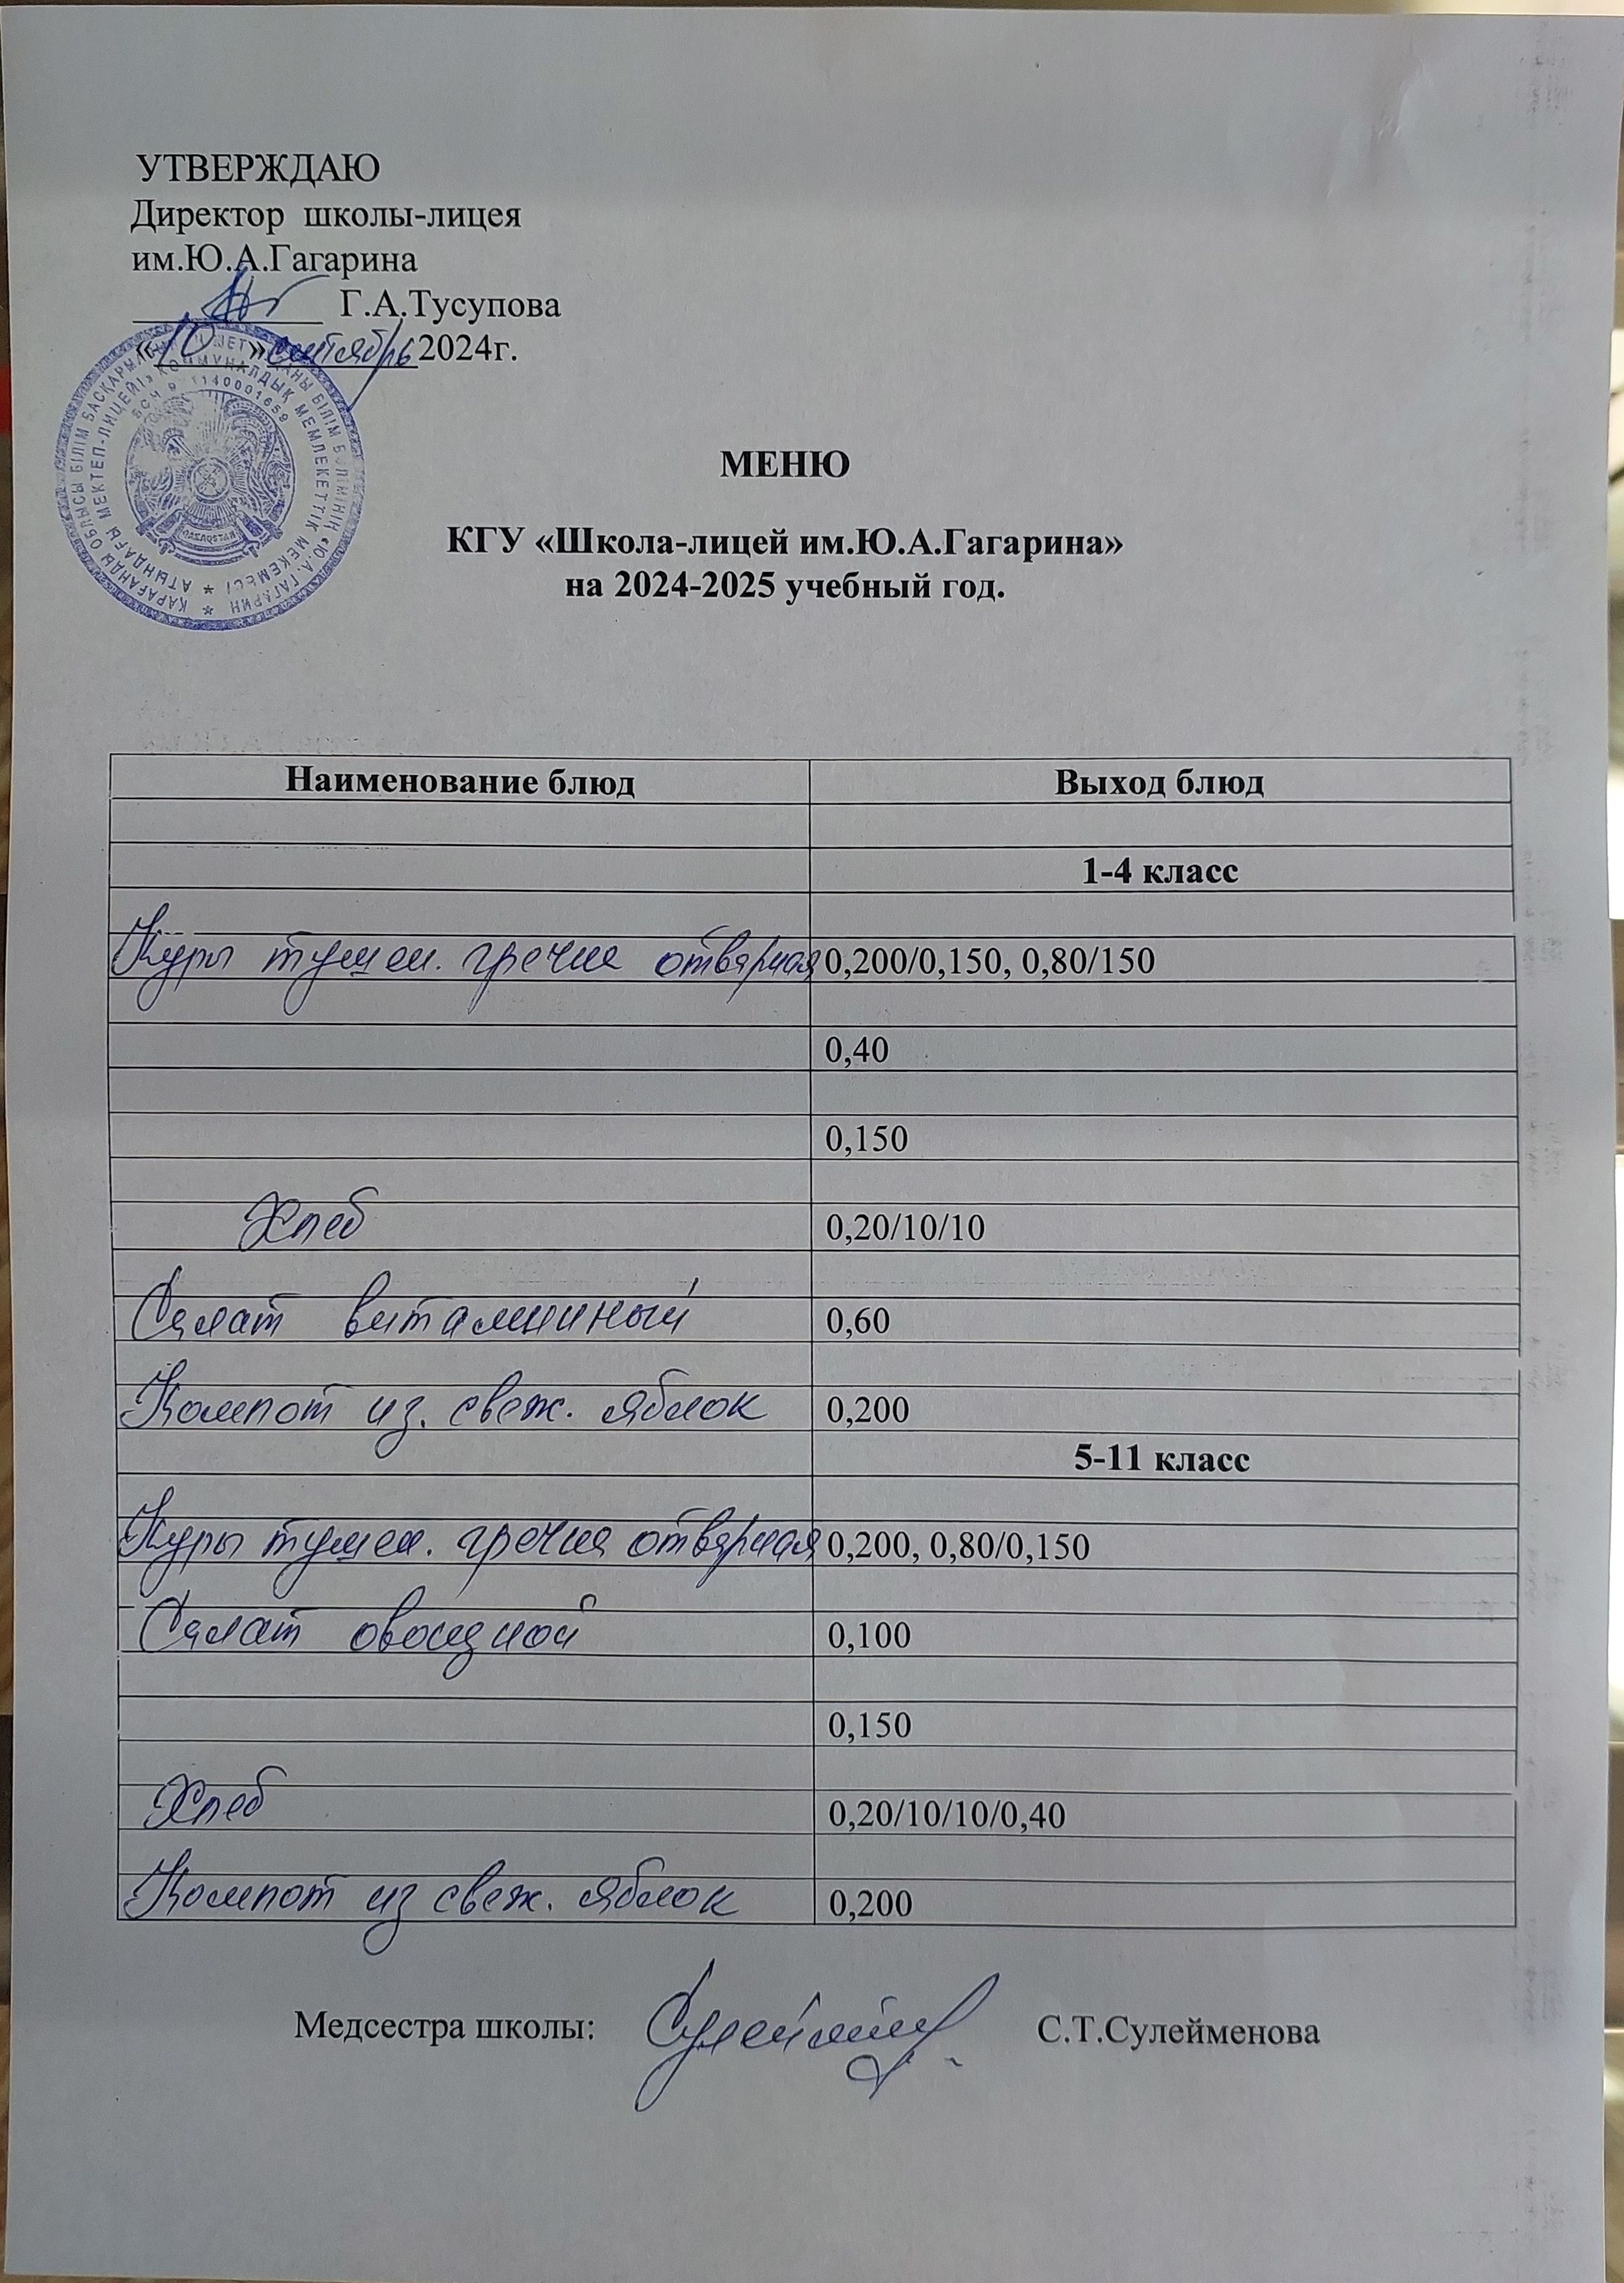 УТВЕРЖДАЮ
Директор школы-лицея
им.Ю.А.Гагарина
Г.А.Тусупова
«10»сентябрь2024г.
ҚАРАҒАНДЫ ОБЛЫСЫ БІЛІМ БАСҚАРМАСЫ БІЛІМ БӨЛІМІНІҢ «Ю.А. ГАГАРИН
АТЫНДАҒЫ МЕКТЕП-ЛИЦЕЙІ» КОММУНАЛДЫҚ МЕМЛЕКЕТТІК МЕКЕМЕСІ
QAZAQSTAN
МЕНЮ
КГУ «Школа-лицей им.Ю.А.Гагарина»
на 2024-2025 учебный год.
Наименование блюд Выход блюд
1-4 класс
Куры тушен. гречка отварная 0,200/0,150, 0,80/150
0,40
0,150
Хлеб 0,20/10/10
Салат витаминный 0,60
Компот из. свеж. яблок 0,200
5-11 класс
Куры тушен. гречка отварная 0,200, 0,80/0,150
Салат овощной 0,100
0,150
Хлеб 0,20/10/10/0,40
Компот из свеж. яблок 0,200
Медсестра школы: С.Т.Сулейменова